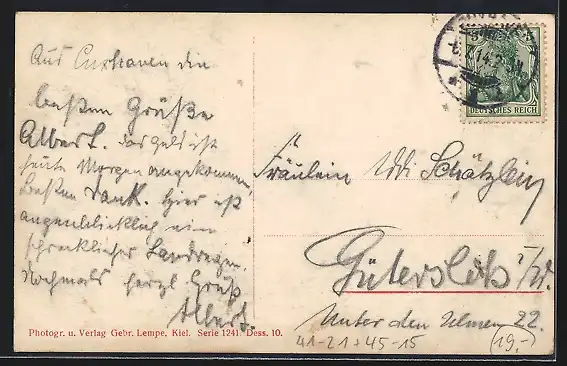 Aus Cuxhaven die
besten Grüße
Albert. das Geld ist
heute Morgen angekommen,
Besten Dank. hier ist
augenblicklich ein
schrecklicher Landregen.
Nochmals herzl Gruß
Albert.
Photogr. u. Verlag Gebr. Lempe, Kiel. Serie 1241. Dess. 10.
7.14.2
DEUTSCHES REICH
Fräulein Iddi Schätzlein
Gütersloh i/W.
Unter den Ulmen 22.
41-21+45-15
(19,-)